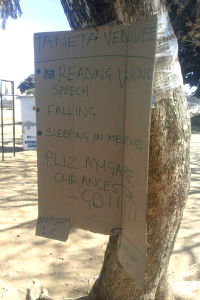 TANETA VEDUWEE
READING WRONG
SPEECH
• FALLING
• SLEEPING IN MEETINGS
PLIZ MUGABE
OUR ANCESTOR
- GO!!!